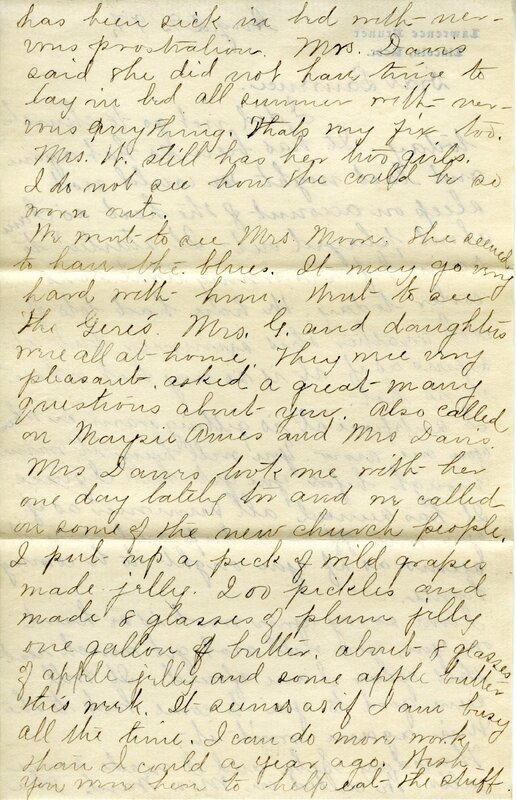 has been sick in bed with ner-
vous prostration. Mrs. Davis
said she did not have time to
lay in bed all summer with ner-
vous anything. Thats my fix too.
Mrs. W. still has her two girls.
I do not see how she could be so
worn out.
We went to see Mrs. Moon. She seemed
to have the blues. It may go very
hard with him. Went to see
the Geres. Mrs. G. and daughters
were all at home. They were very
pleasant. asked a great many
questions about you. Also called
on Maysie Ames and Mrs Davis.
Mrs Davis took me with her
one day lately and we called
on some of the new church people.
I put up a peck of wild grapes
made jelly. 200 pickles and
made 8 glasses of plum jelly
one gallon of butter. about 8 glasses
of apple jelly and some apple butter
this week. It seems as if I am busy
all the time. I can do more work
than I could a year ago. Wish
you were here to help eat the stuff.